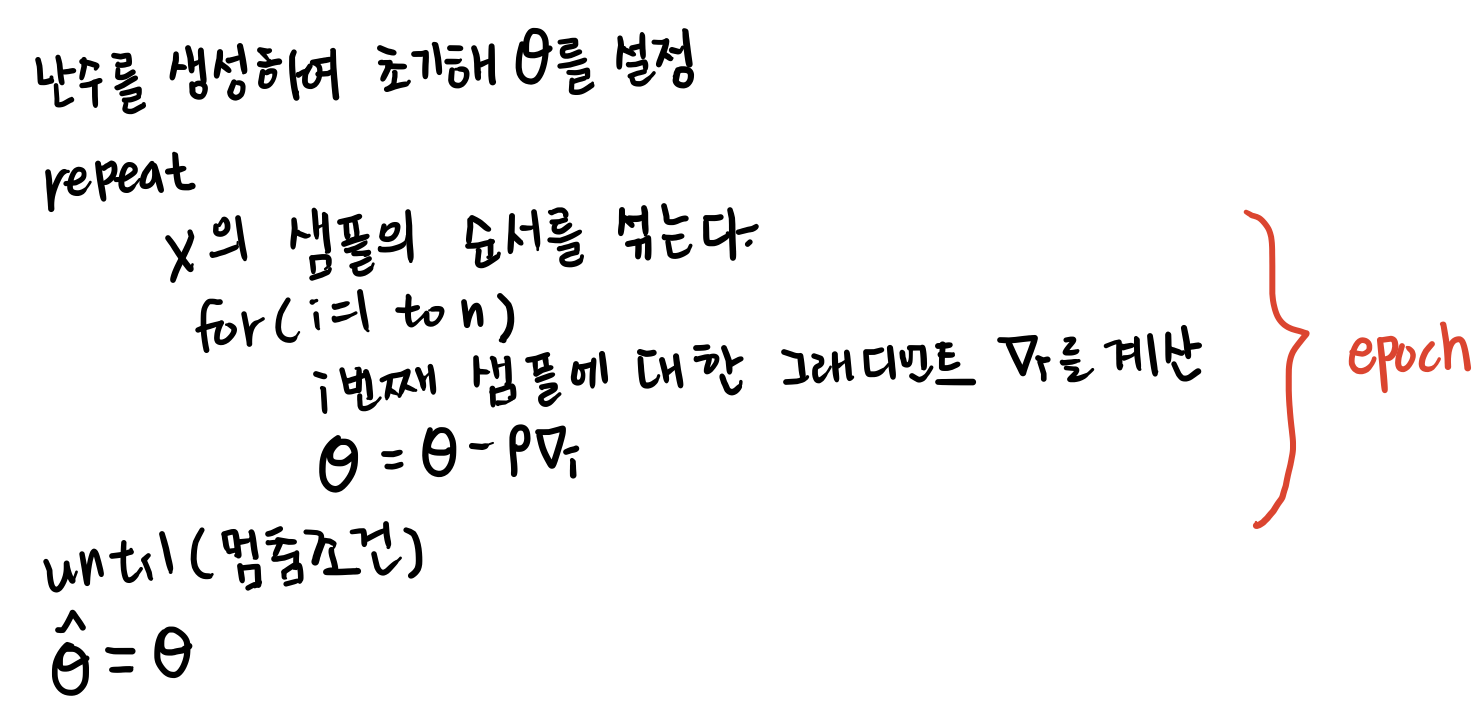 난수를 생성하여 초기해 θ를 설정
repeat
X의 샘플의 순서를 섞는다.
for(i=1 to n)
i번째 샘플에 대한 그래디언트 ∇i를 계산
θ = θ - ρ∇i
until(멈춤조건)
θ̂ = θ
epoch